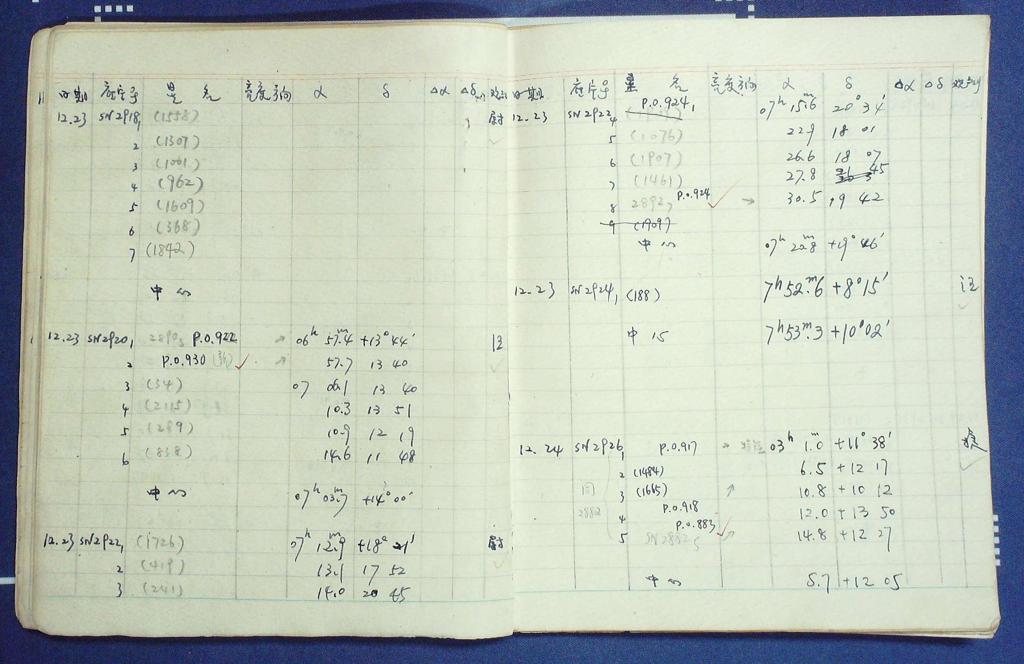 日期 底片号 星名 亮度方向 α δ Δα Δδ
12.23 SN2918, 1 (1558) 尉
2 (1307)
3 (1001)
4 (962)
5 (1609)
6 (368)
7 (1842)
中心
12.23 SN2920, 1 P.0.922 → 06ʰ 57.4ᵐ +13° 44' 汪
2 P.0.930 ✓ → 57.7 13 40
3 (34) 07 06.1 13 40
4 (2115) 10.3 13 51
5 (289) 10.9 12 19
6 (838) 14.6 11 48
中心 07ʰ 03.7ᵐ +14° 00'
12.23 SN2922, 1 (1726) 07ʰ 12.9ᵐ +18° 21' 尉
2 (419) 13.1 17 52
3 (241) 14.0 20 45
日期 底片号 星名 亮度方向 α δ Δα Δδ
12.23 SN2922, 4 P.0.924, 07ʰ 15.6ᵐ 20° 34'
5 (1076) 22.9 18 01
6 (1907) 26.6 18 07
7 (1461) 27.8 45
8 2892, P.0.924 ✓ → 30.5 19 42
9 (1909)
中心 07ʰ 20.8ᵐ +19° 46'
12.23 SN2924, 1 (188) 7ʰ52.6ᵐ +8°15' 汪
中心 7ʰ53.3ᵐ +10°02'
12.24 SN2926, 1 P.0.917 → 03ʰ 1.0ᵐ +11° 38'
2 (1484) 6.5 +12 17
同 3 (1665) ↗ 10.8 +10 12
2882 4 P.0.918 12.0 +13 50
5 P.0.883 ✓ ↗ 14.8 +12 27
中心 5.7 +12 05